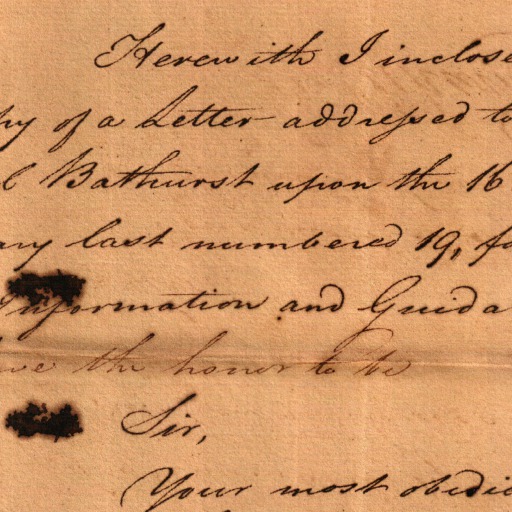 Herewith I inclose
py of a Letter addressed to
l Bathurst upon the 16
ary last numbered 19, fo
Information and Guida
ve the honor to be
Sir,
Your most obedie